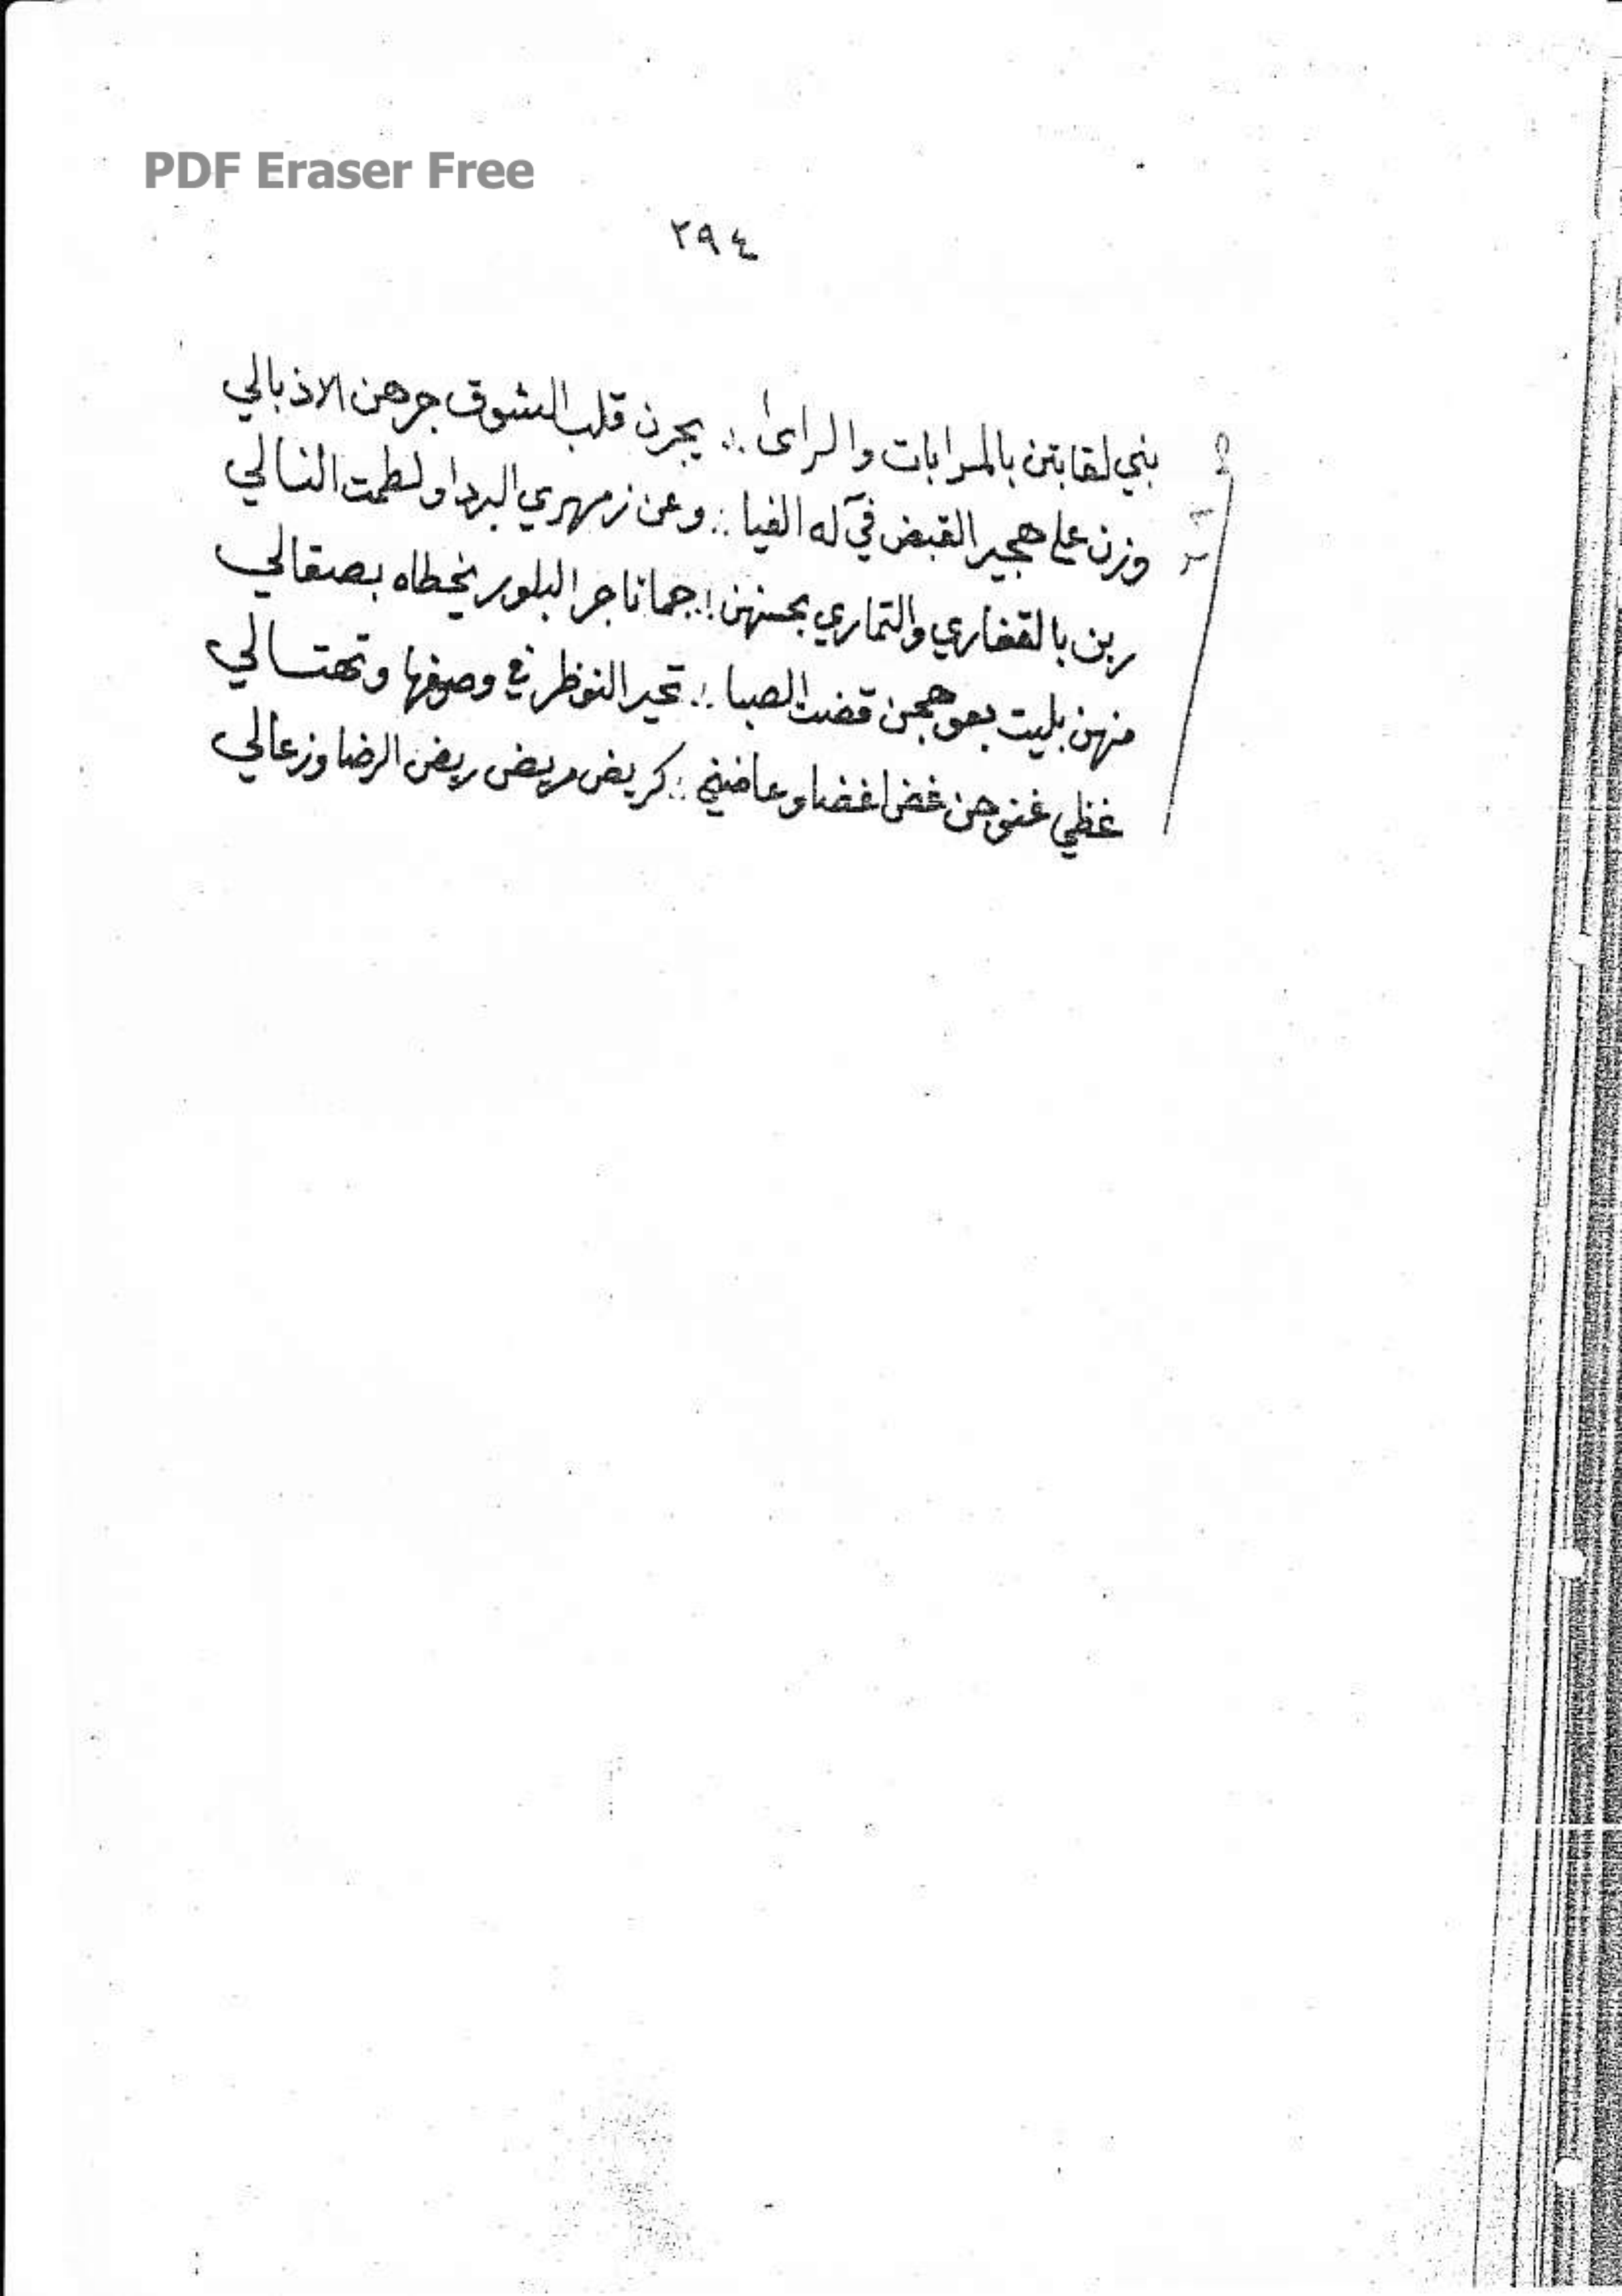 PDF Eraser Free
٢٩٤
بني لقابتن بالمرابات والراى ∴ يجرن قلب الشوق جرهن الاذبالي
وزن على هجير القبض في آله الفيا ∴ وعن زمهري البرد اولطمت النالي
ربن بالقفاري والتماري بحسنهن ∴ جمانا حر البلور يخطاه بصقالي
منهن بليت بعوهجن قضت الصبا ∴ تحير النوظر في وصوفها وتهتالي
غظي غنوجن غض اغضا وعاضني ∴ كريض مريض ريض الرضا وزعالي